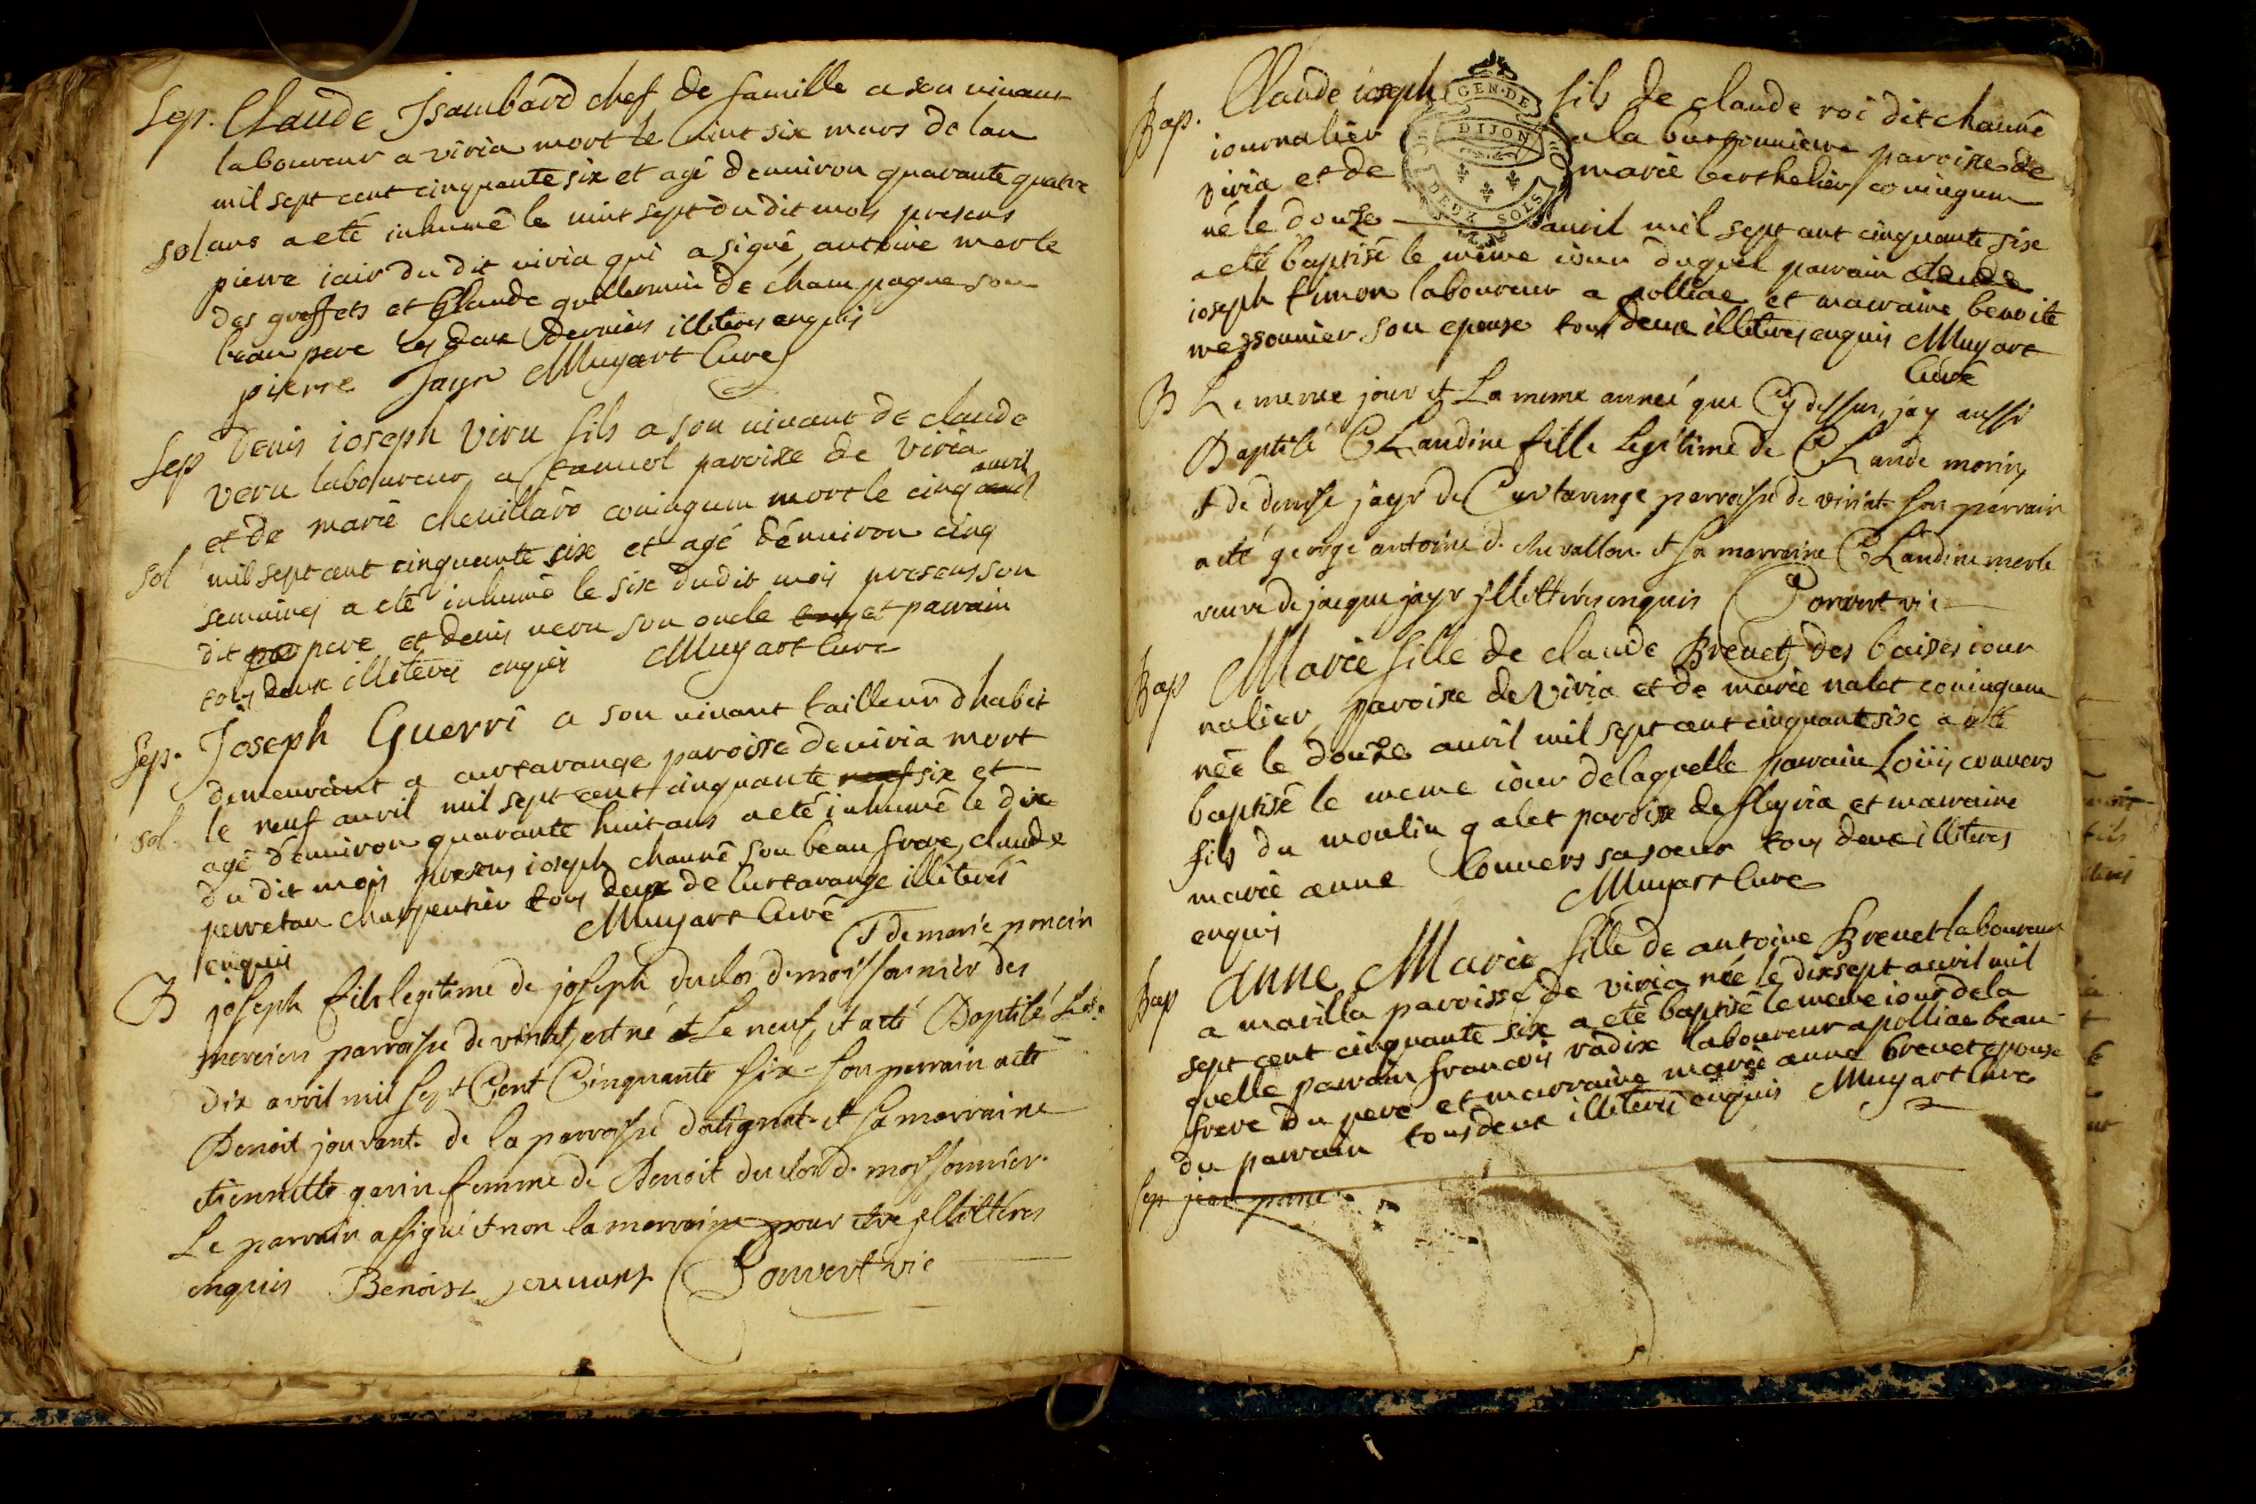 Sep. Claude Isambard chef de famille a son vivant
laboureur a viria mort le vint six mars de lan
mil sept cent cinquante six et agé denviron quarante quatre
sol ans a eté inhumé le vint sept du dit mois presens
pierre iair du dit viria qui a signé, antoine merle
des greffets et Claude guillermin de champagne son
beau pere les deux derniers illiterés enquis
pierre Jayr Muyart Curé
Sep Denis ioseph Viru fils a son vivant de claude
veru laboureur a paroixe de viria
et de marie chevillard coniugum mort le cinq avril
sol mil sept cent cinquante six et agé denviron cinq
semaines a eté inhumé le six dudit mois presens son
dit pere et denis veru son oncle et parrain
tous deux illiterés enquis Muyart Curé
Sep. Joseph Guerri a son vivant tailleur dhabit
demeurant a curtarange paroisse de viria mort
sol. le neuf avril mil sept cent cinquante neuf six et
agé denviron quarante huit ans a eté inhumé le dix
du dit mois presens ioseph chauné son beau frere, claude
perretan charpentier tous deux de Curtarange illiterés
enquis Muyart Curé
& de marie poncin
B joseph fils legitime de joseph duclos d. moissonnier des
merciers parroisse de viriat, est né & Le neuf, et a eté Baptisé Le
dix avril mil sept Cent Cinquante six - son parrain a eté
Benoit jouvent. de la parroisse et sa marraine
etiennette garin femme de Benoit duclos d. moissonnier.
Le parrain a signé et non la marraine pour etre jllitterés
enquis Benoist jouuant Convert vic
Bap. Claude ioseph fils de claude roi dit chauné
GEN. DE DIJON DEUX SOLS
iournalier a la bussonniere paroixe de
viria et de marie berthelier coniugum
né le douze avril mil sept cent cinquante six
a eté baptisé le meme iour duquel parrain claude
ioseph timon laboureur a polliac et marraine benoite
messonnier son epouse tous deux illiterés enquis Muyart
Curé
B Le meme jour & La meme année que Cy dessus, jay aussi
Baptisé CLaudine fille Legitime de CLaude morin,
& de denise jayr de Curtaringe parroisse de viriat son parrain
a eté george antoine d. chevallon. & sa marraine CLaudine merle
veuve de jacque jayr jllitterés enquis Convert vic
Bap Marie fille de claude Brevet des baises iour
nalier, paroixe de viria et de marie nalet coniugum
née le douze avril mil sept cent cinquante six a eté
baptisé le meme iour de laquelle parrain Loüis convers
fils du moulin galet paroixe de fleyria et marraine
marie anne Convers sa soeur tous deux illiterés
enquis Muyart Curé
Bap Anne Marie fille de antoine Brevet laboureur
a marilla paroisse de viria née le dixsept avril mil
sept cent cinquante six a eté baptisé le meme iour de la
quelle parrain francois vadix laboureur a polliac beau-
frere du pere et marraine marie anne brevet epouse
du parrain tous deux illiterés enquis Muyart Curé
Sep jean